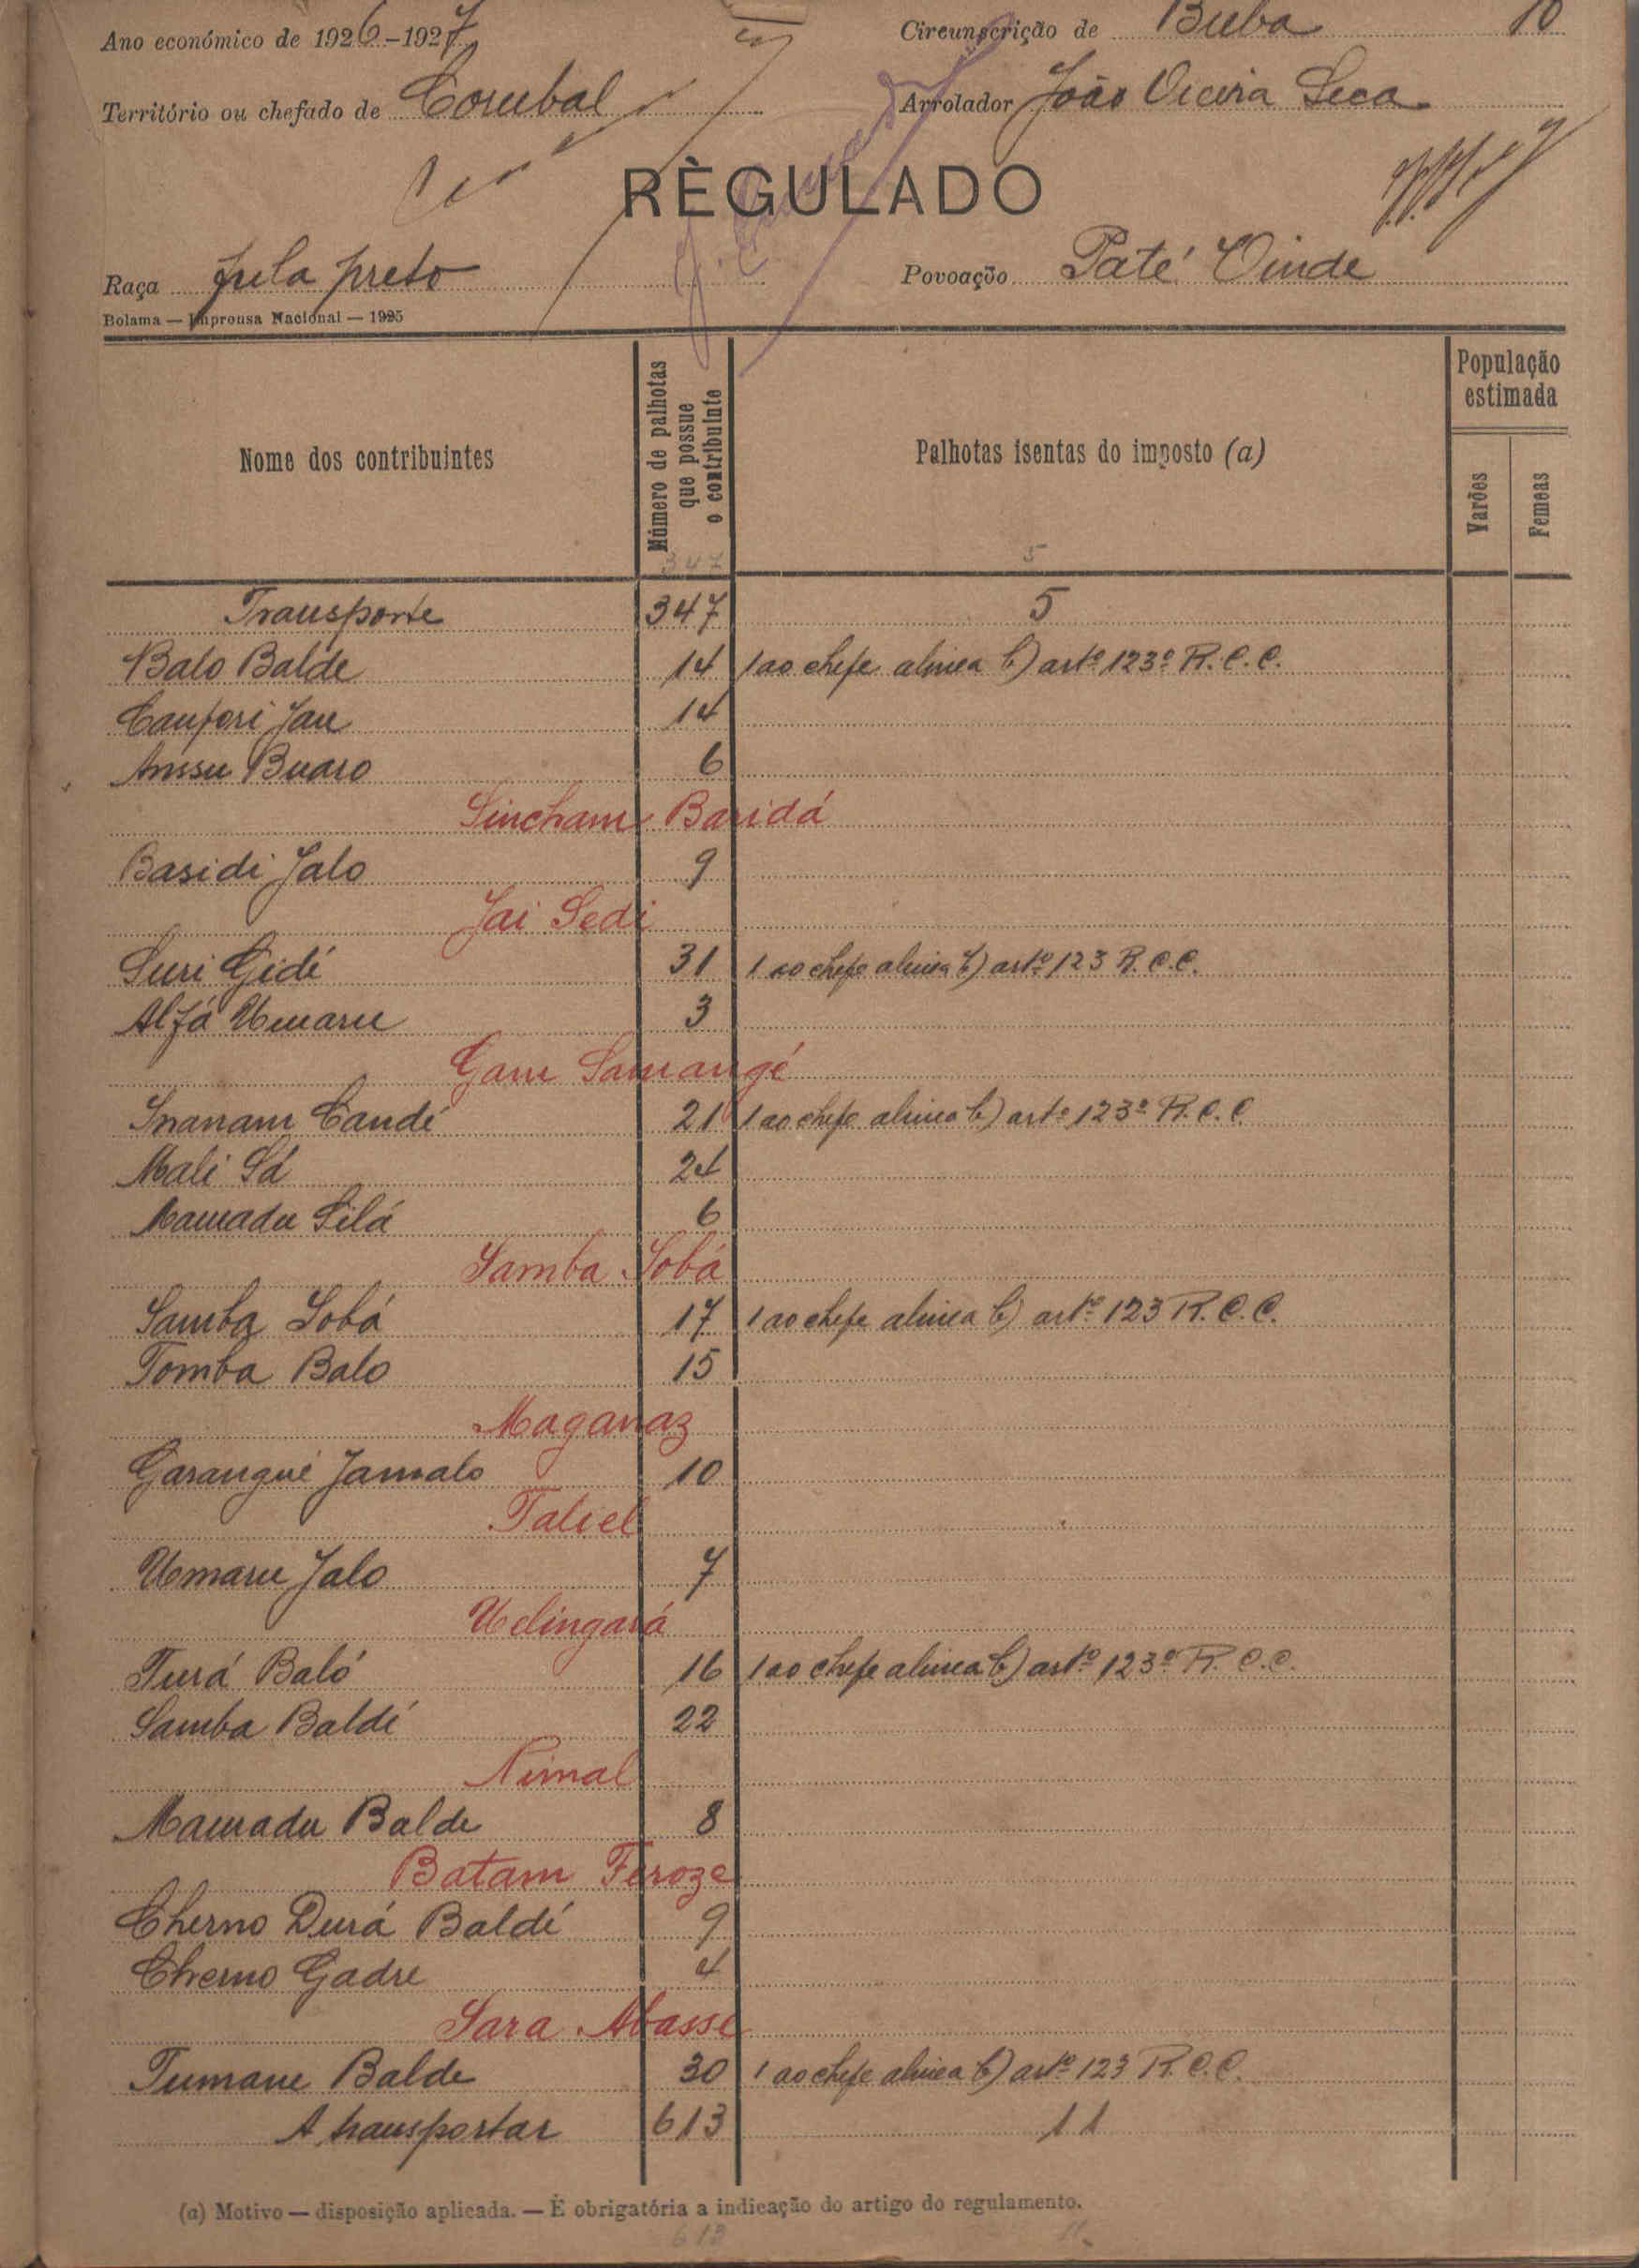 Ano económico de 1926-1927 Circunscrição de Buba 10
Território ou chefado de Corubal Arrolador João Vieira Seca
RÈGULADO
Raça fula preto Povoação Paté Vinde
Bolama — Imprensa Nacional — 1925
Nome dos contribuintes Número de palhotas que possue o contribuinte Palhotas isentas do imposto (a) População estimada
Varões Femeas
347 5
Transporte 347 5
Balo Balde 14 1 ao chefe alinea b) artº 123º R. C. C.
Canfori Jau 14
Anssu Buaro 6
Sincham Baridá
Basidi Jalo 9
Jai Sedi
Suri Gidi 31 1 ao chefe alinea b) artº 123 R. C. C.
Alfá Umaru 3
Gam Samangé
Inanam Candé 21 1 ao chefe alinea b) artº 123º R. C. C.
Mali Sá 24
Mamadu Silá 6
Samba Sobá
Samba Sobá 17 1 ao chefe alinea b) artº 123 R. C. C.
Tomba Balo 15
Maganaz
Garangué Jamalo 10
Taliel
Umaru Jalo 7
Uelingará
Turá Baló 16 1 ao chefe alinea b) artº 123º R. C. C.
Samba Baldé 22
Nimal
Mamadu Balde 8
Batam Feroze
Cherno Durá Baldé 9
Cherno Gadre 4
Sara Abasse
Tumane Balde 30 1 ao chefe alinea b) artº 123 R. C. C.
A transportar 613 11
(a) Motivo — disposição aplicada. — É obrigatória a indicação do artigo do regulamento.
613 11